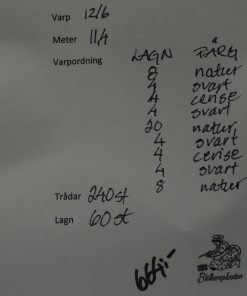 Varp 12/6
Meter 11,4
Varpordning LAGN FÄRG
8 natur
4 svart
4 cerise
4 svart
20 natur
4 svart
4 cerise
4 svart
8 natur
Trådar 240 st
Lagn 60 st
664:-